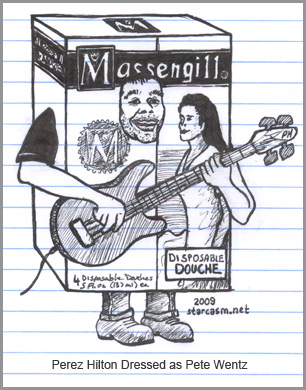 Massengill®
Massengill
M
PH
DISPOSABLE
DOUCHE
4 Disposable Douches
5 Fl Oz (137 ml) ea
2009
starcasm.net
Perez Hilton Dressed as Pete Wentz